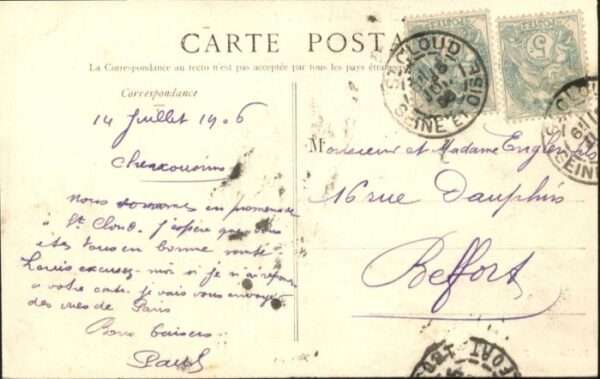 CARTE POSTA
La Correspondance au recto n'est pas acceptée par tous les pays étran
Correspondance
14 Juillet 1906
Chers cousins
Nous sommes en promenade
à St Cloud. j'espère que vous
êtes tous en bonne santé
Louis excusez-moi si je n'ai répondu
à votre carte je vais vous envoyer
des vues de Paris
Bons baisers
Paul
Monsieur et Madame
16 rue Dauphin
Belfort
ST CLOUD
SEINE ET OISE
POSTES
5
ST CLOUD
SEINE
FORT